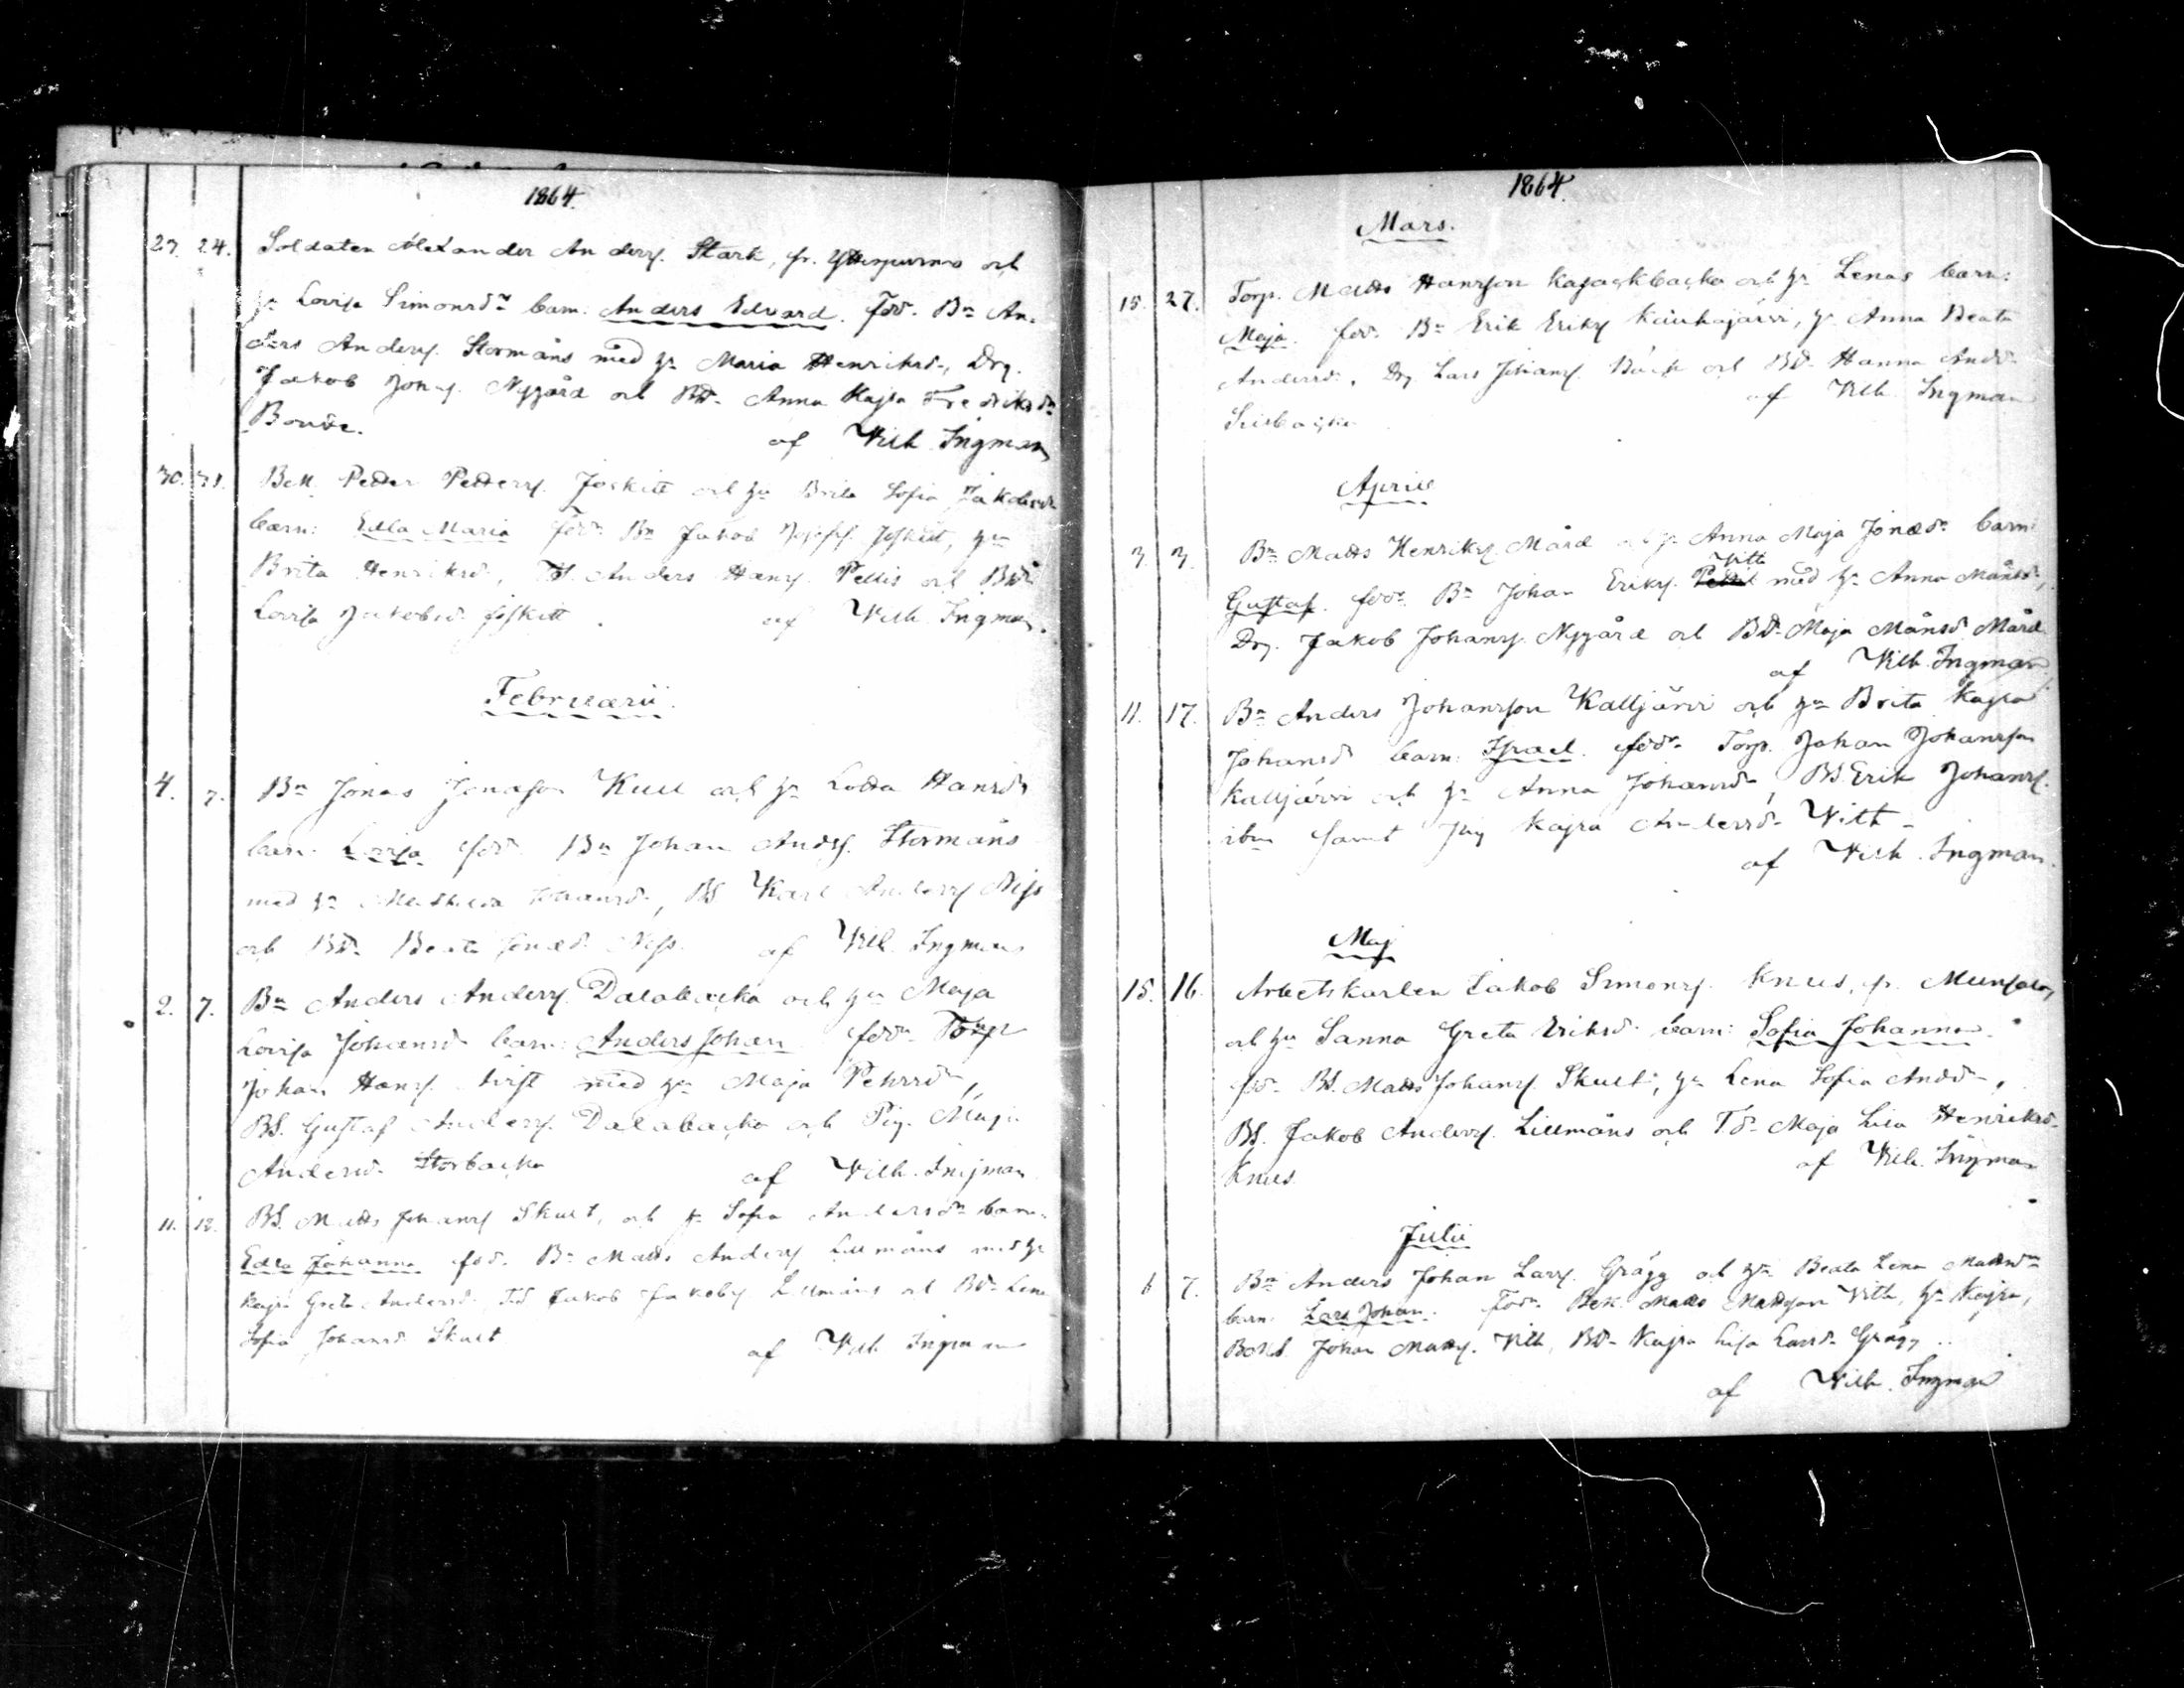 1864.
23. 24. Soldaten Alexander Anderss. Stark, fr. Ytterpurmo och
h:u Lovisa Simonsdr barn: Anders Edvard. fdr. Bn An-
ders Anderss. Stormåns med h:u Maria Henriksdr, Drg.
Jakob Johss. Nygård och Bd. Anna Kajsa Fredriksdr
Bonde.
af Wilh. Ingman
30. 31. Bek. Petter Petterss. Joskitt och h:u Brita Sofia Jakobsdr
barn: Edla Maria fdr. Bn Jakob Josefss. Joskitt, h:u
Brita Henriksdr, Anders Hanss. Pellis och Bd.
Lovisa Jakobsdr Joskitt.
af Wilh. Ingman.
Februarii.
4. 7. Bn Jonas Jonasson Kull och h:u Lotta Hansdr
barn: Lovisa fdr. Bn Johan Andss. Stormåns
med h:u Johansdr, BS Karl Anderss
och Bd. Beata Jonasdr af Wilh. Ingman
2. 7. Bn Anders Anderss. Dalabacka och h:u Maja
Lovisa Johansdr barn: Anders Johan fdr. Torp
Johan Hanss. med h:u Maja Pehrsdr,
BS. Gustaf Anderss. Dalabacka och Pig. Maja
Andersdr Storbacka
af Wilh. Ingman
11. 12. BS. Matts Johanss Skult, och h:u Sofia Andersdr barn:
Edla Johanna fdr. Bn Matts Anderss Lillmåns med h:u
Kajsa Greta Andersdr. Jakob Jakobss Lillmåns och Bd. Lena
Sofia Johansdr Skult
af Wilh. Ingman
1864.
Mars.
15. 27. Torp. Matts Hansson Kasackbacka och h:u Lenas barn:
Maja. fdr. Bn Erik Erikss Kauhajärvi, h:u Anna Beata
Andersdr, Drg. Lars Johanss. och Bd. Hanna Andr
af Wilh. Ingman
April
3 3. Bn Matts Henrikss. Mård och h:u Anna Maja Jonasdr barn:
Witt
Gustaf. fdr. Bn Johan Erikss. med h:u Anna Månsdr,
Drg. Jakob Johanss. Nygård och Bd. Maja Månsdr Mård
af Wilh. Ingman
11. 17. Bn Anders Johansson Kalljärvi och h:u Brita Kajsa
Johansdr barn: Israel. fdr. Torp. Johan Johansson
Kalljärvi och h:u Anna Johansdr, BS. Erik Johanss.
ibm samt Pig Kajsa Andersdr Witt.
af Wilh. Ingman.
Maj
15. 16. Arbetskarlen Jakob Simonss. Knus, fr. Munsala,
och h:u Sanna Greta Eriksdr barn: Sofia Johanna.
fdr. BS. Matts Johanss Skult, h:u Lena Sofia Andr,
BS. Jakob Anderss. Lillmåns och Td. Maja Lisa Henriksdr
Knus
af Wilh. Ingman
Julii
6 7. Bn Anders Johan Larss. Grägg och h:u Beata Lena Mattsdr
barn: Lars Johan. fdr. Bek. Matts Mattsson Witt, h:u Kajsa,
BekS Johan Mattss. Witt, Bd. Kajsa Lisa Larsdr Grägg..
af Wilh. Ingman